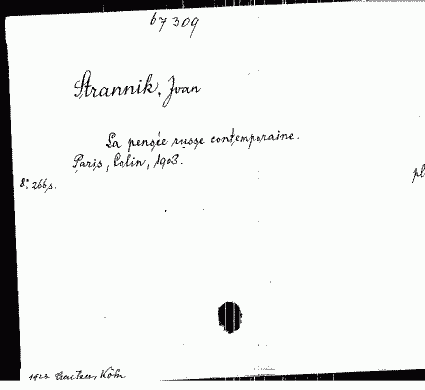 67 309
Strannik, Jvan
La pensée russe contemporaine.
Paris, Colin, 1903.
8° 266 s.
pl
Köln